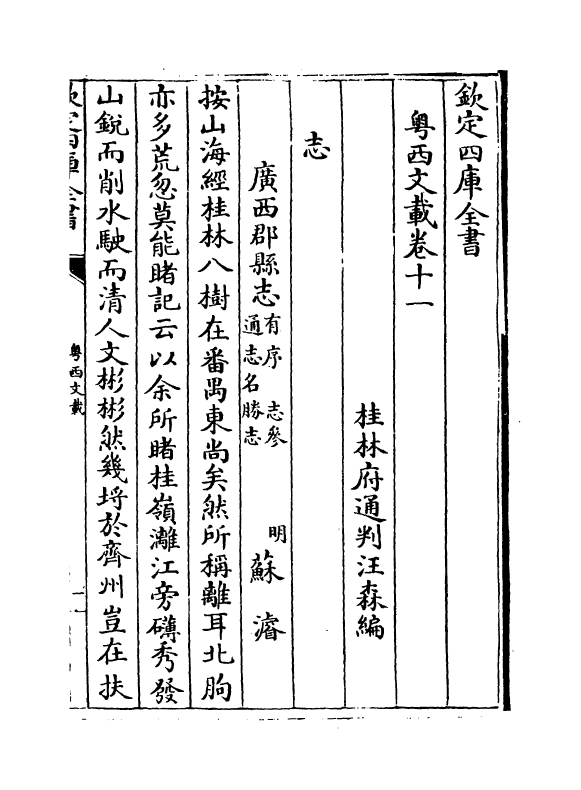 欽定四庫全書
粤西文載卷十一
桂林府通判汪森編
志
廣西郡縣志有序　志參通志名勝志　明蘇濬
按山海經桂林八樹在番禺東尚矣然所稱離耳北朐
亦多荒忽莫能睹記云以余所睹桂嶺灕江旁礴秀發
山銳而削水駛而清人文彬彬然幾埒於齊州豈在扶
欽定四庫全書
粤西文載